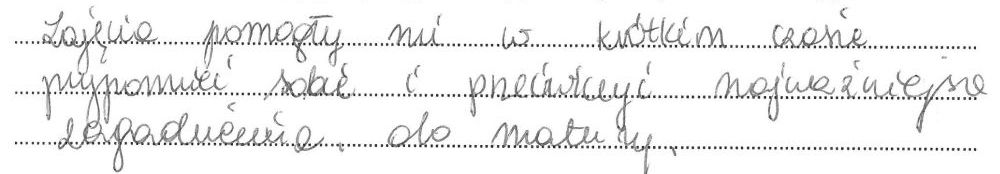 Zajęcia pomogły mi w krótkim czasie
przypomnieć sobie i przećwiczyć najważniejsze
zagadnienia do matury.